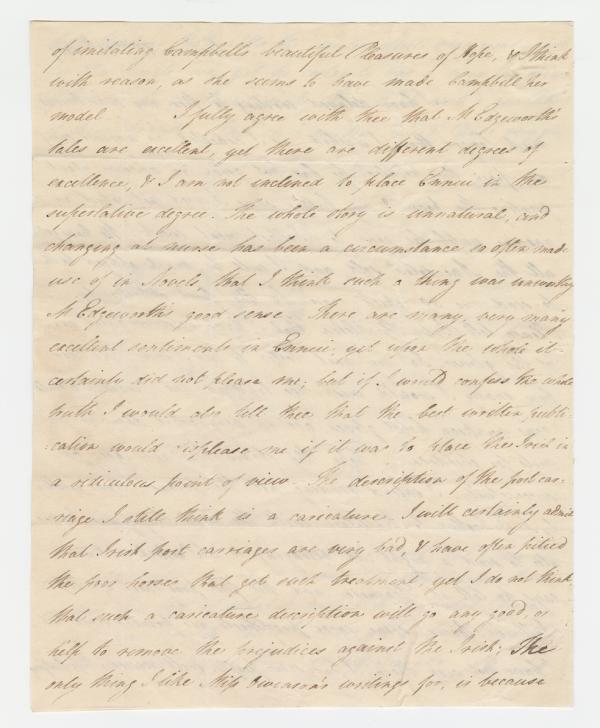 of imitating Campbell's beautiful Pleasures of Hope, & I think
with reason, as she seems to have made Campbell her
model I fully agree with thee that M Edgeworth's
tales are excellent, yet there are different degrees of
excellence, & I am not inclined to place Ennui in the
superlative degree. The whole story is unnatural, and
changing at nurse has been a circumstance so often made
use of in Novels, that I think such a thing was unworthy
M Edgeworth's good sense. There are many, very many
excellent sentiments in Ennui, yet upon the whole it
certainly did not please me; but if I would confess the whole
truth I would also tell thee that the best written publi-
cation would displease me if it was to place the Irish in
a ridiculous point of view. The description of the post car-
riage I still think is a caricature. I will certainly admit
that Irish post carriages are very bad, & have often pitied
the poor horses that get such treatment, yet I do not think
that such a caricature description will do any good, or
help to remove the prejudices against the Irish; The
only thing I like Miss Owenson's writings for, is because